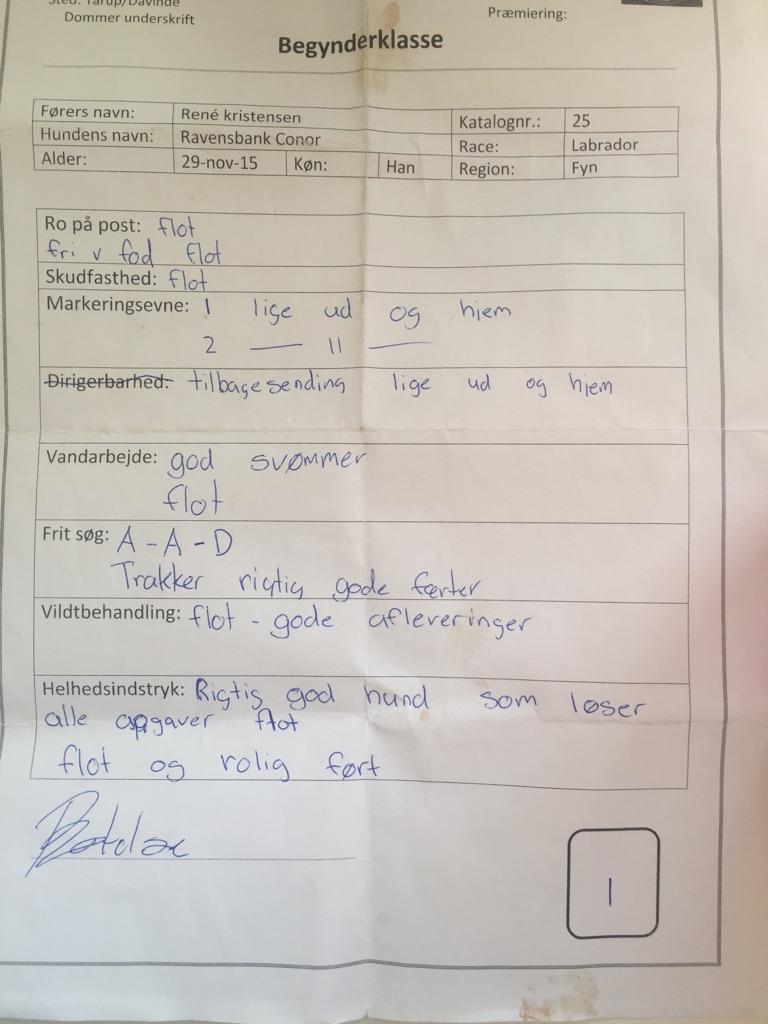 Sted: Tarup/Davinde
Dommer underskrift
Præmiering:
Begynderklasse
Førers navn: René kristensen
Katalognr.: 25
Hundens navn: Ravensbank Conor
Race: Labrador
Alder: 29-nov-15 Køn: Han
Region: Fyn
Ro på post: flot
fri v fod flot
Skudfasthed: flot
Markeringsevne: 1 lige ud og hjem
2 — 11 —
Dirigerbarhed: tilbagesending lige ud og hjem
Vandarbejde: god svømmer
flot
Frit søg: A - A - D
Trækker rigtig gode færter
Vildtbehandling: flot - gode afleveringer
Helhedsindstryk: Rigtig god hund som løser
alle opgaver flot
flot og rolig ført
1